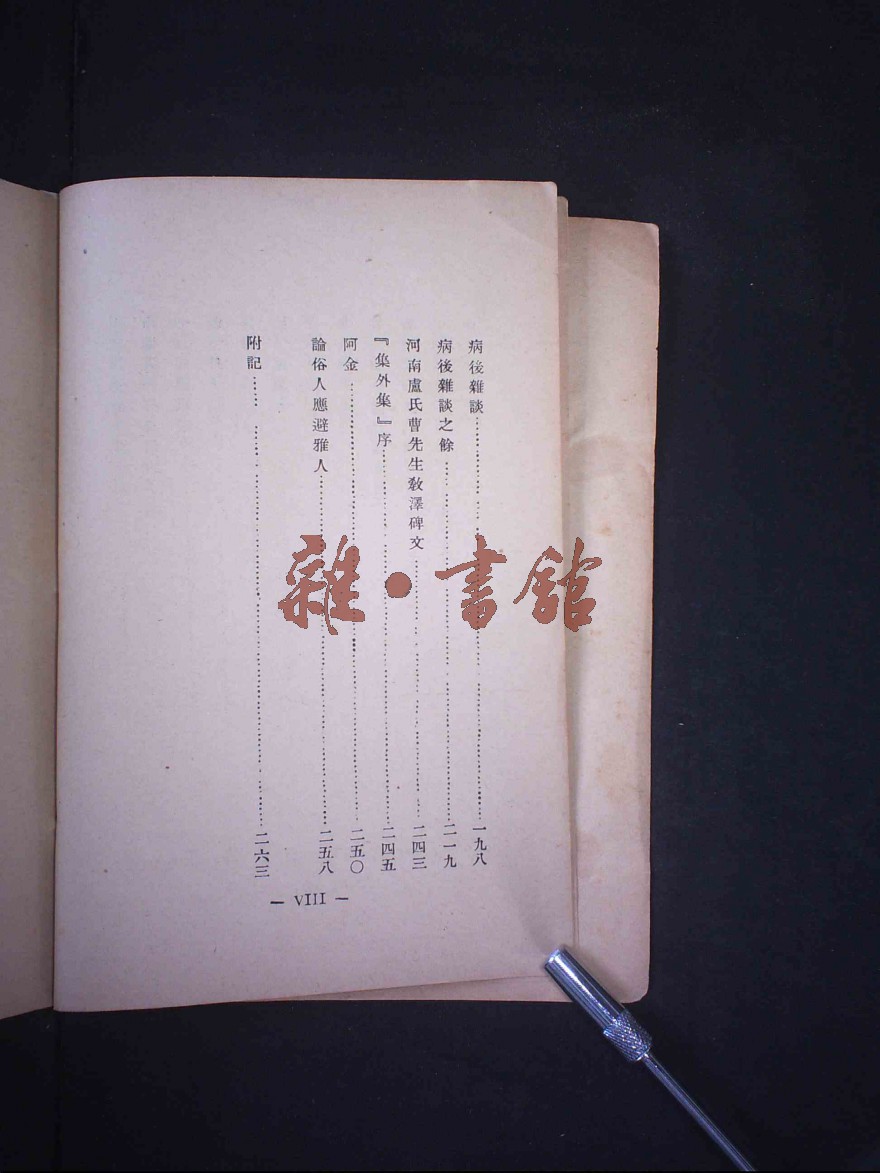 病後雜談……一九八
病後雜談之餘……二一九
河南盧氏曹先生敎澤碑文……二四三
『集外集』序……二四五
阿金……二五〇
論俗人應避雅人……二五八
附記……二六三
— VIII —
雜·書館